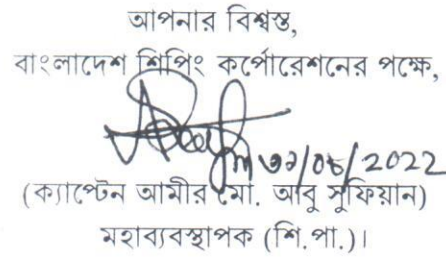 আপনার বিশ্বস্ত,
বাংলাদেশ শিপিং কর্পোরেশনের পক্ষে,
(ক্যাপ্টেন আমীর মো. আবু সুফিয়ান)
মহাব্যবস্থাপক (শি.পা.)।